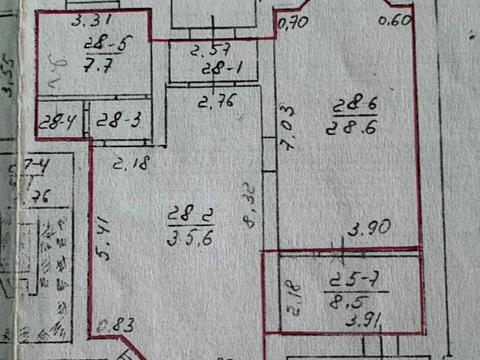 3.31
0,70
0,60
28-5
7.7
2.57
28-1
3,55
2.76
28.6
28.6
28-4
28-3
7,03
2.18
7-4
.76
28 2
35,6
8,32
5,41
3.90
25-7
8,5
2,18
3.91
0,83